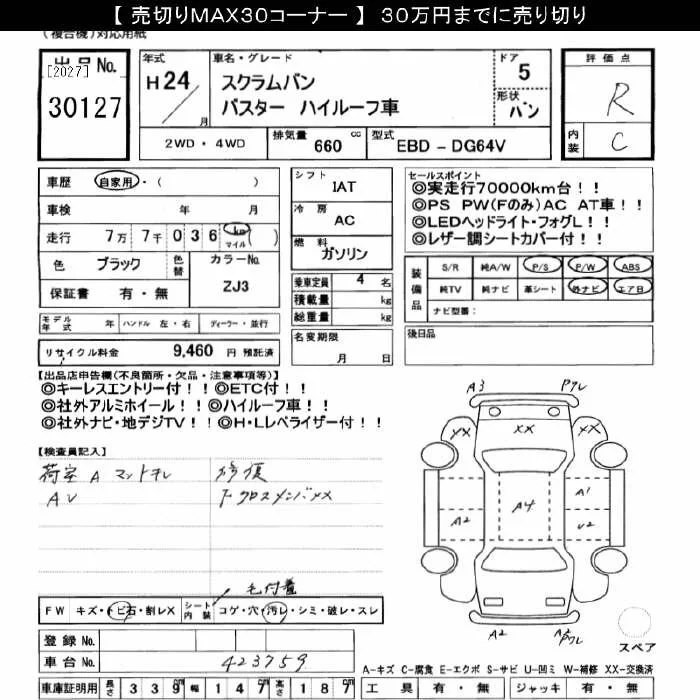 【 売切りMAX30コーナー 】 30万円までに売り切り
(複合機)対応用紙
出品No.
[2027]
30127
年式
H24
月
車名・グレード
スクラムバン
バスター ハイルーフ車
ドア
5
形状
バン
2WD・4WD
排気量
660
cc
型式
EBD - DG64V
評価点
R
内装
C
車歴
自家用・( )
車検 年 月
走行 7万 7千 0 3 6 km マイル ( )
色 ブラック
色替
カラーNo.
ZJ3
保証書 有・無
モデル年式 年 ハンドル 左・右 ディーラー・並行
リサイクル料金 9,460 円 預託済
シフト
IAT
冷房
AC
燃料
ガソリン
乗車定員 4 名
積載量 kg
総重量 kg
名変期限
月 日
セールスポイント
◎実走行70000km台!!
◎PS PW(Fのみ)AC AT車!!
◎LEDヘッドライト・フォグL!!
◎レザー調シートカバー付!!
装備品
S/R 純A/W P/S P/W ABS
純TV 純ナビ 革シート 外ナビ エアB
ナビ型番:
後日品
【出品店申告欄(不良箇所・欠品・注意事項等)】
◎キーレスエントリー付!!◎ETC付!!
◎社外アルミホイール!!◎ハイルーフ車!!
◎社外ナビ・地デジTV!!◎H・Lレベライザー付!!
【検査員記入】
荷室 A マットヨレ
AU
修復
下クロスメンバXX
毛付着
FW キズ・トビ石・割レX
シート内装
コゲ・穴・汚レ・シミ・破レ・スレ
登録No.
車台No. 423759
車庫証明用 長さ 339 cm 幅 147 cm 高さ 187 cm
A3
Pワレ
XX
XX
XX
A4
A2
A1
U2
A2
A3
Pワレ
スペア
A-キズ C-腐食 E-エクボ S-サビ U-凹ミ W-補修 XX-交換済
工具 有・無 ジャッキ 有・無